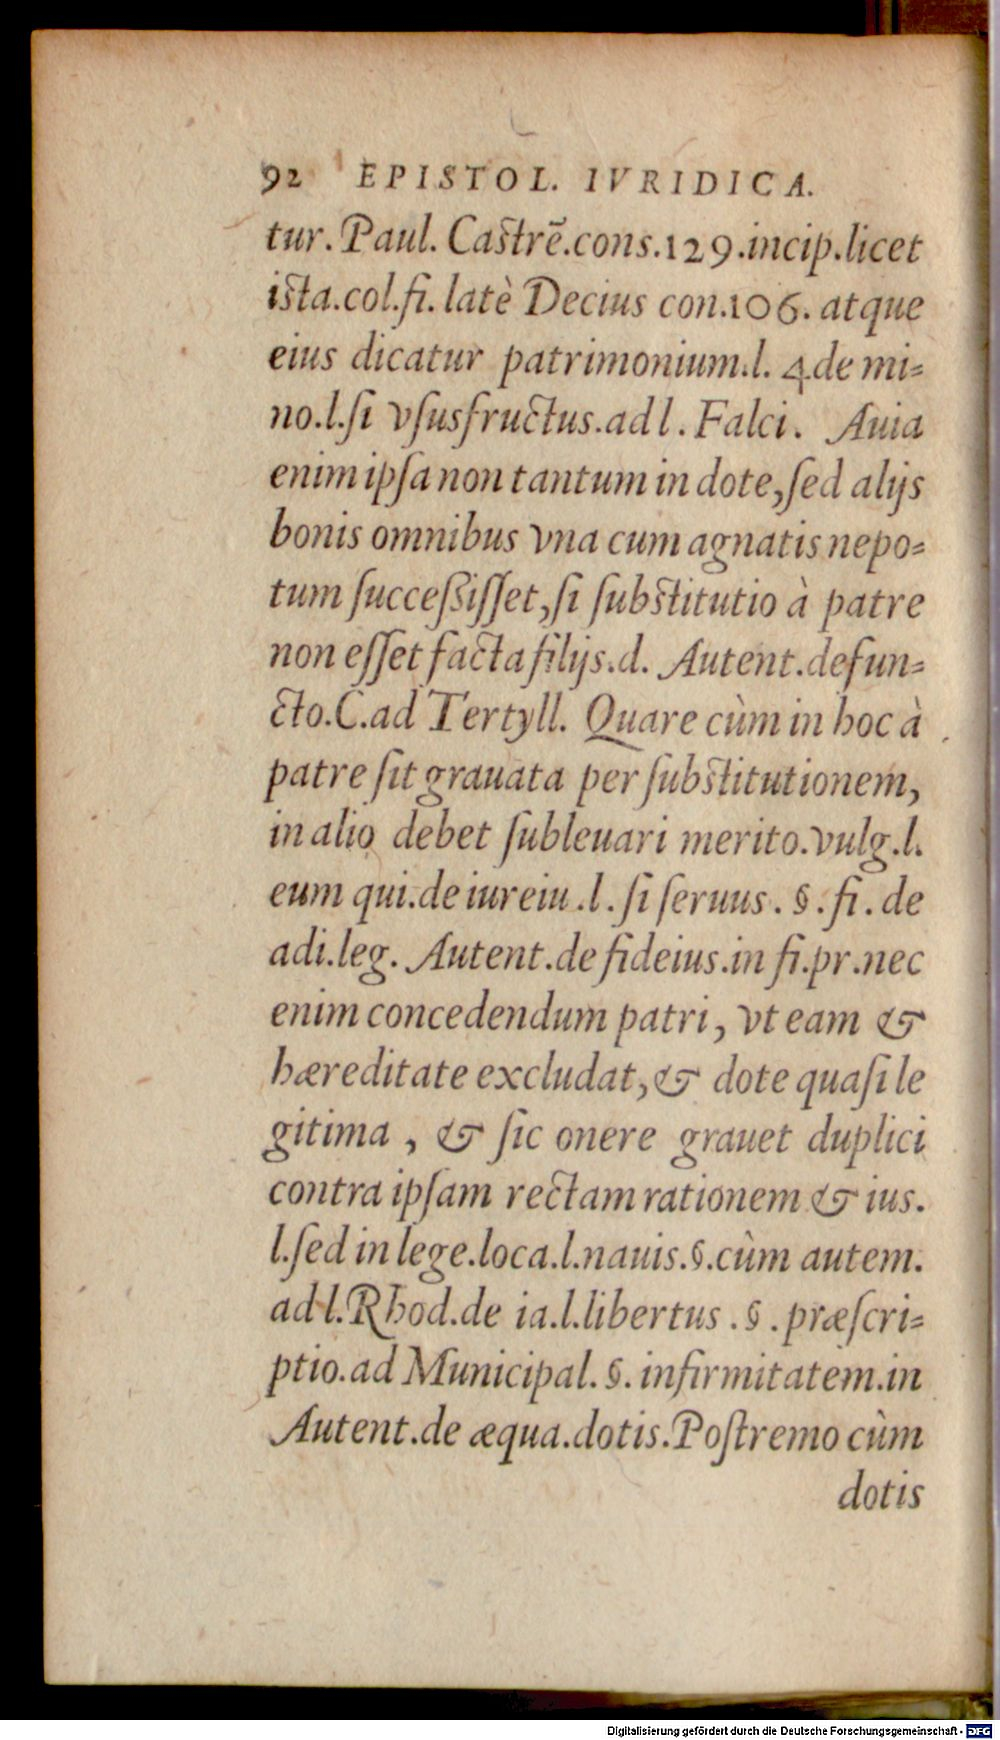 92 EPISTOL. IVRIDICA.
tur. Paul. Castrē.cons.129.incip.licet
ista.col.fi. latè Decius con.106. atque
eius dicatur patrimonium.l. 4.de mi-
no.l.ſi vſusfructus.ad l. Falci. Auia
enim ipſa non tantum in dote,ſed alijs
bonis omnibus vna cum agnatis nepo-
tum ſucceſsiſſet,ſi ſubſtitutio à patre
non eſſet facta filijs.d. Autent.defun-
cto.C.ad Tertyll. Quare cùm in hoc à
patre ſit grauata per ſubſtitutionem,
in alio debet ſubleuari merito.vulg.l.
eum qui.de iureiu.l. ſi ſeruus. §. fi. de
adi.leg. Autent.de fideius.in fi.pr.nec
enim concedendum patri, vt eam &
hæreditate excludat,& dote quaſi le
gitima, & ſic onere grauet duplici
contra ipſam rectam rationem & ius.
l.ſed in lege.loca.l.nauis.§.cùm autem.
ad l.Rhod.de ia.l.libertus. §. præſcri-
ptio.ad Municipal. §. infirmitatem.in
Autent.de æqua.dotis.Poſtremo cùm
dotis
Digitalisierung gefördert durch die Deutsche Forschungsgemeinschaft - DFG